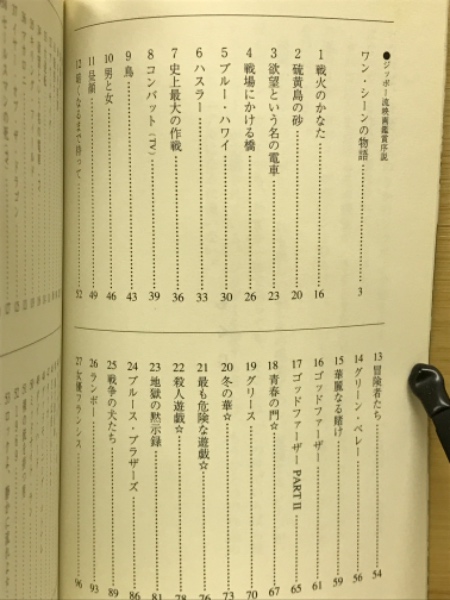 ●ジッポー流映画鑑賞序説
ワン・シーンの物語 3
1 戦火のかなた 16
2 硫黄島の砂 20
3 欲望という名の電車 23
4 戦場にかける橋 26
5 ブルー・ハワイ 30
6 ハスラー 33
7 史上最大の作戦 36
8 コンバット(TV) 39
9 鳥 43
10 男と女 46
11 昼顔 49
12 暗くなるまで待って 52
13 冒険者たち 54
14 グリーン・ベレー 56
15 華麗なる賭け 59
16 ゴッドファーザー 61
17 ゴッドファーザー PART II 65
18 青春の門☆ 67
19 グリース 70
20 冬の華☆ 73
21 最も危険な遊戯☆ 76
22 殺人遊戯☆ 78
23 地獄の黙示録 81
24 ブルース・ブラザーズ 86
25 戦争の犬たち 89
26 ランボー 93
27 女優フランシス 96